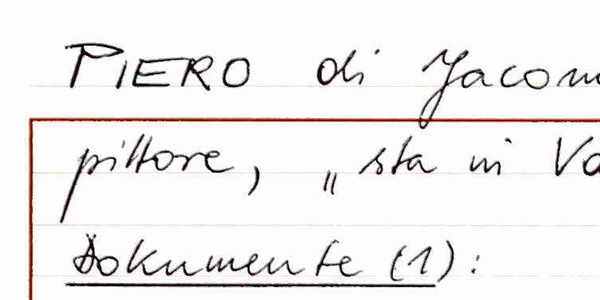 PIERO di Jacom
pittore, „sta in Va
Dokumente (1):